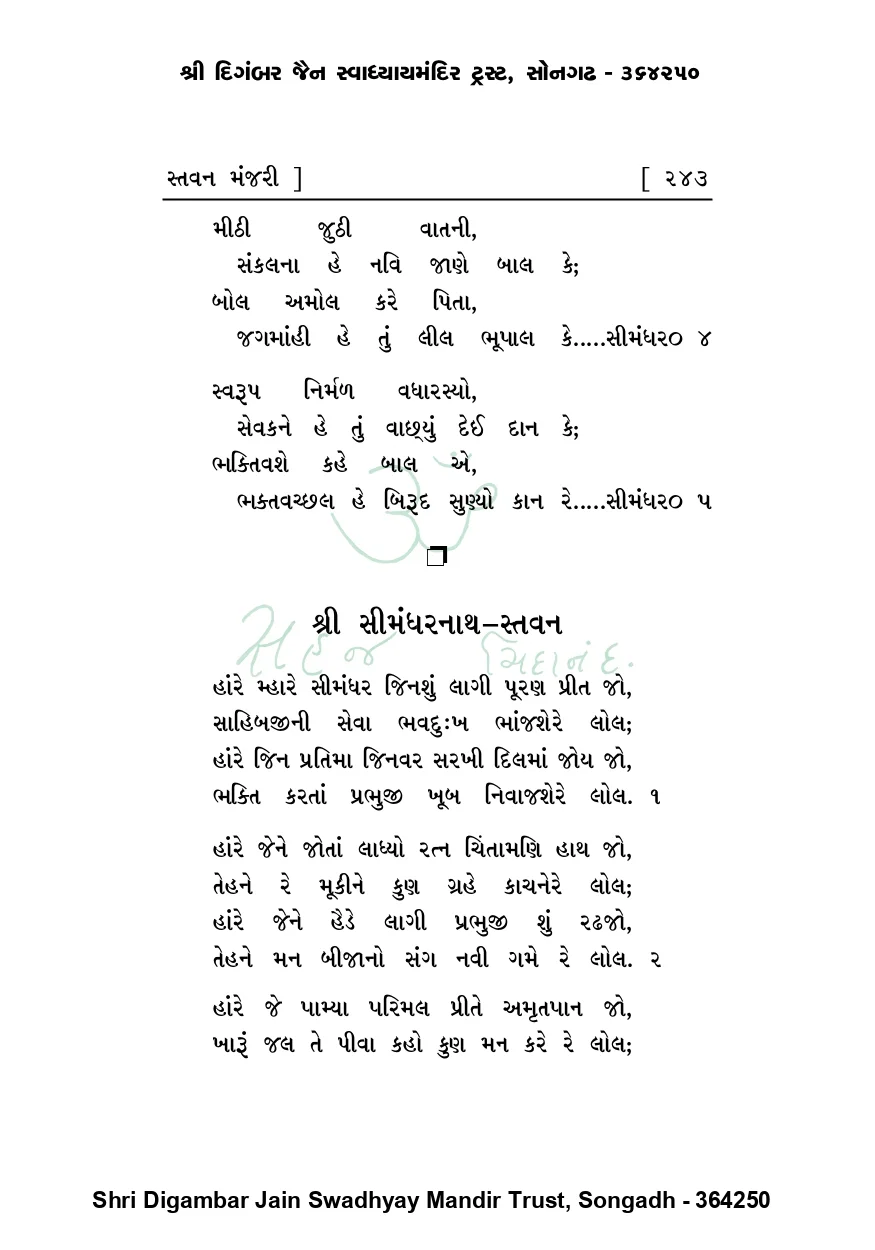 શ્રી દિગંબર જૈન સ્વાધ્યાયમંદિર ટ્રસ્ટ, સોનગઢ - ૩૬૪૨૫૦
સ્તવન મંજરી ] [ ૨૪૩
મીઠી જુઠી વાતની,
સંકલના હે નવિ જાણે બાલ કે;
બોલ અમોલ કરે પિતા,
જગમાંહી હે તું લીલ ભૂપાલ કે.....સીમંધર૦ ૪
સ્વરૂપ નિર્મળ વધારસ્યો,
સેવકને હે તું વાછ્યું દેઈ દાન કે;
ભક્તિવશે કહે બાલ એ,
ભક્તવચ્છલ હે બિરૂદ સુણ્યો કાન રે.....સીમંધર૦ ૫
ૐ
શ્રી સીમંધરનાથ–સ્તવન
સહજ ચિદાનંદ.
હાંરે મ્હારે સીમંધર જિનશું લાગી પૂરણ પ્રીત જો,
સાહિબજીની સેવા ભવદુઃખ ભાંજશેરે લોલ;
હાંરે જિન પ્રતિમા જિનવર સરખી દિલમાં જોય જો,
ભક્તિ કરતાં પ્રભુજી ખૂબ નિવાજશેરે લોલ. ૧
હાંરે જેને જોતાં લાધ્યો રત્ન ચિંતામણિ હાથ જો,
તેહને રે મૂકીને કુણ ગ્રહે કાચનેરે લોલ;
હાંરે જેને હૈડે લાગી પ્રભુજી શું રઢજો,
તેહને મન બીજાનો સંગ નવી ગમે રે લોલ. ૨
હાંરે જે પામ્યા પરિમલ પ્રીતે અમૃતપાન જો,
ખારૂં જલ તે પીવા કહો કુણ મન કરે રે લોલ;
Shri Digambar Jain Swadhyay Mandir Trust, Songadh - 364250